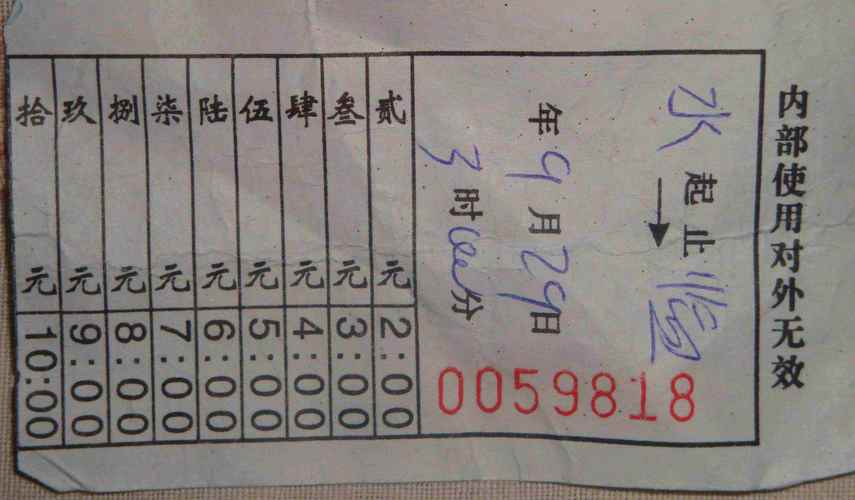 内部使用对外无效
水 起 → 止
年9月29日
3时 分
0059818
贰 元 2:00
叁 元 3:00
肆 元 4:00
伍 元 5:00
陆 元 6:00
柒 元 7:00
捌 元 8:00
玖 元 9:00
拾 元 10:00